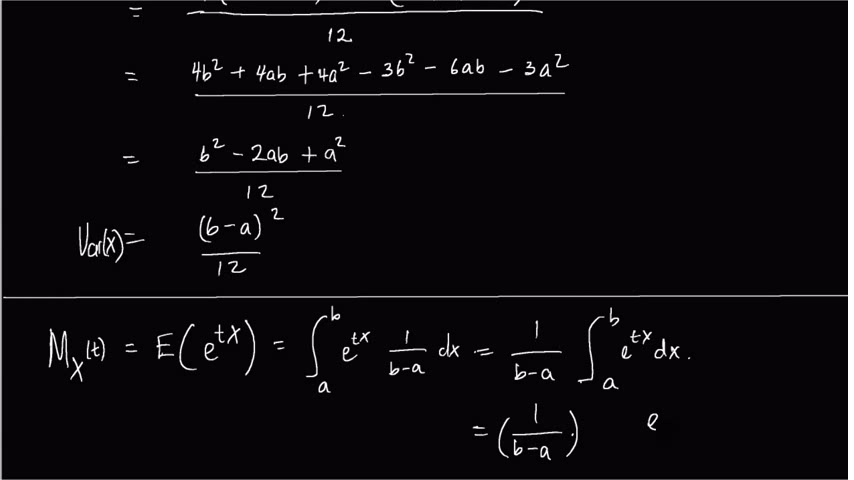 =
12
= 4b² + 4ab + 4a² − 3b² − 6ab − 3a²
12.
= b² − 2ab + a²
12
Var(x) = (b−a)²
12
M_X(t) = E(e^{tX}) = ∫_a^b e^{tx} 1/(b−a) dx = 1/(b−a) ∫_a^b e^{tx} dx.
= (1/(b−a).) e